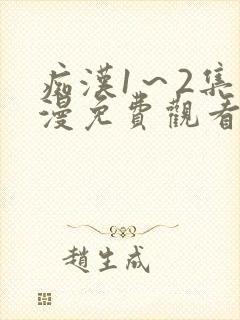 痴漢1~2集
漫免費觀看
趙生成